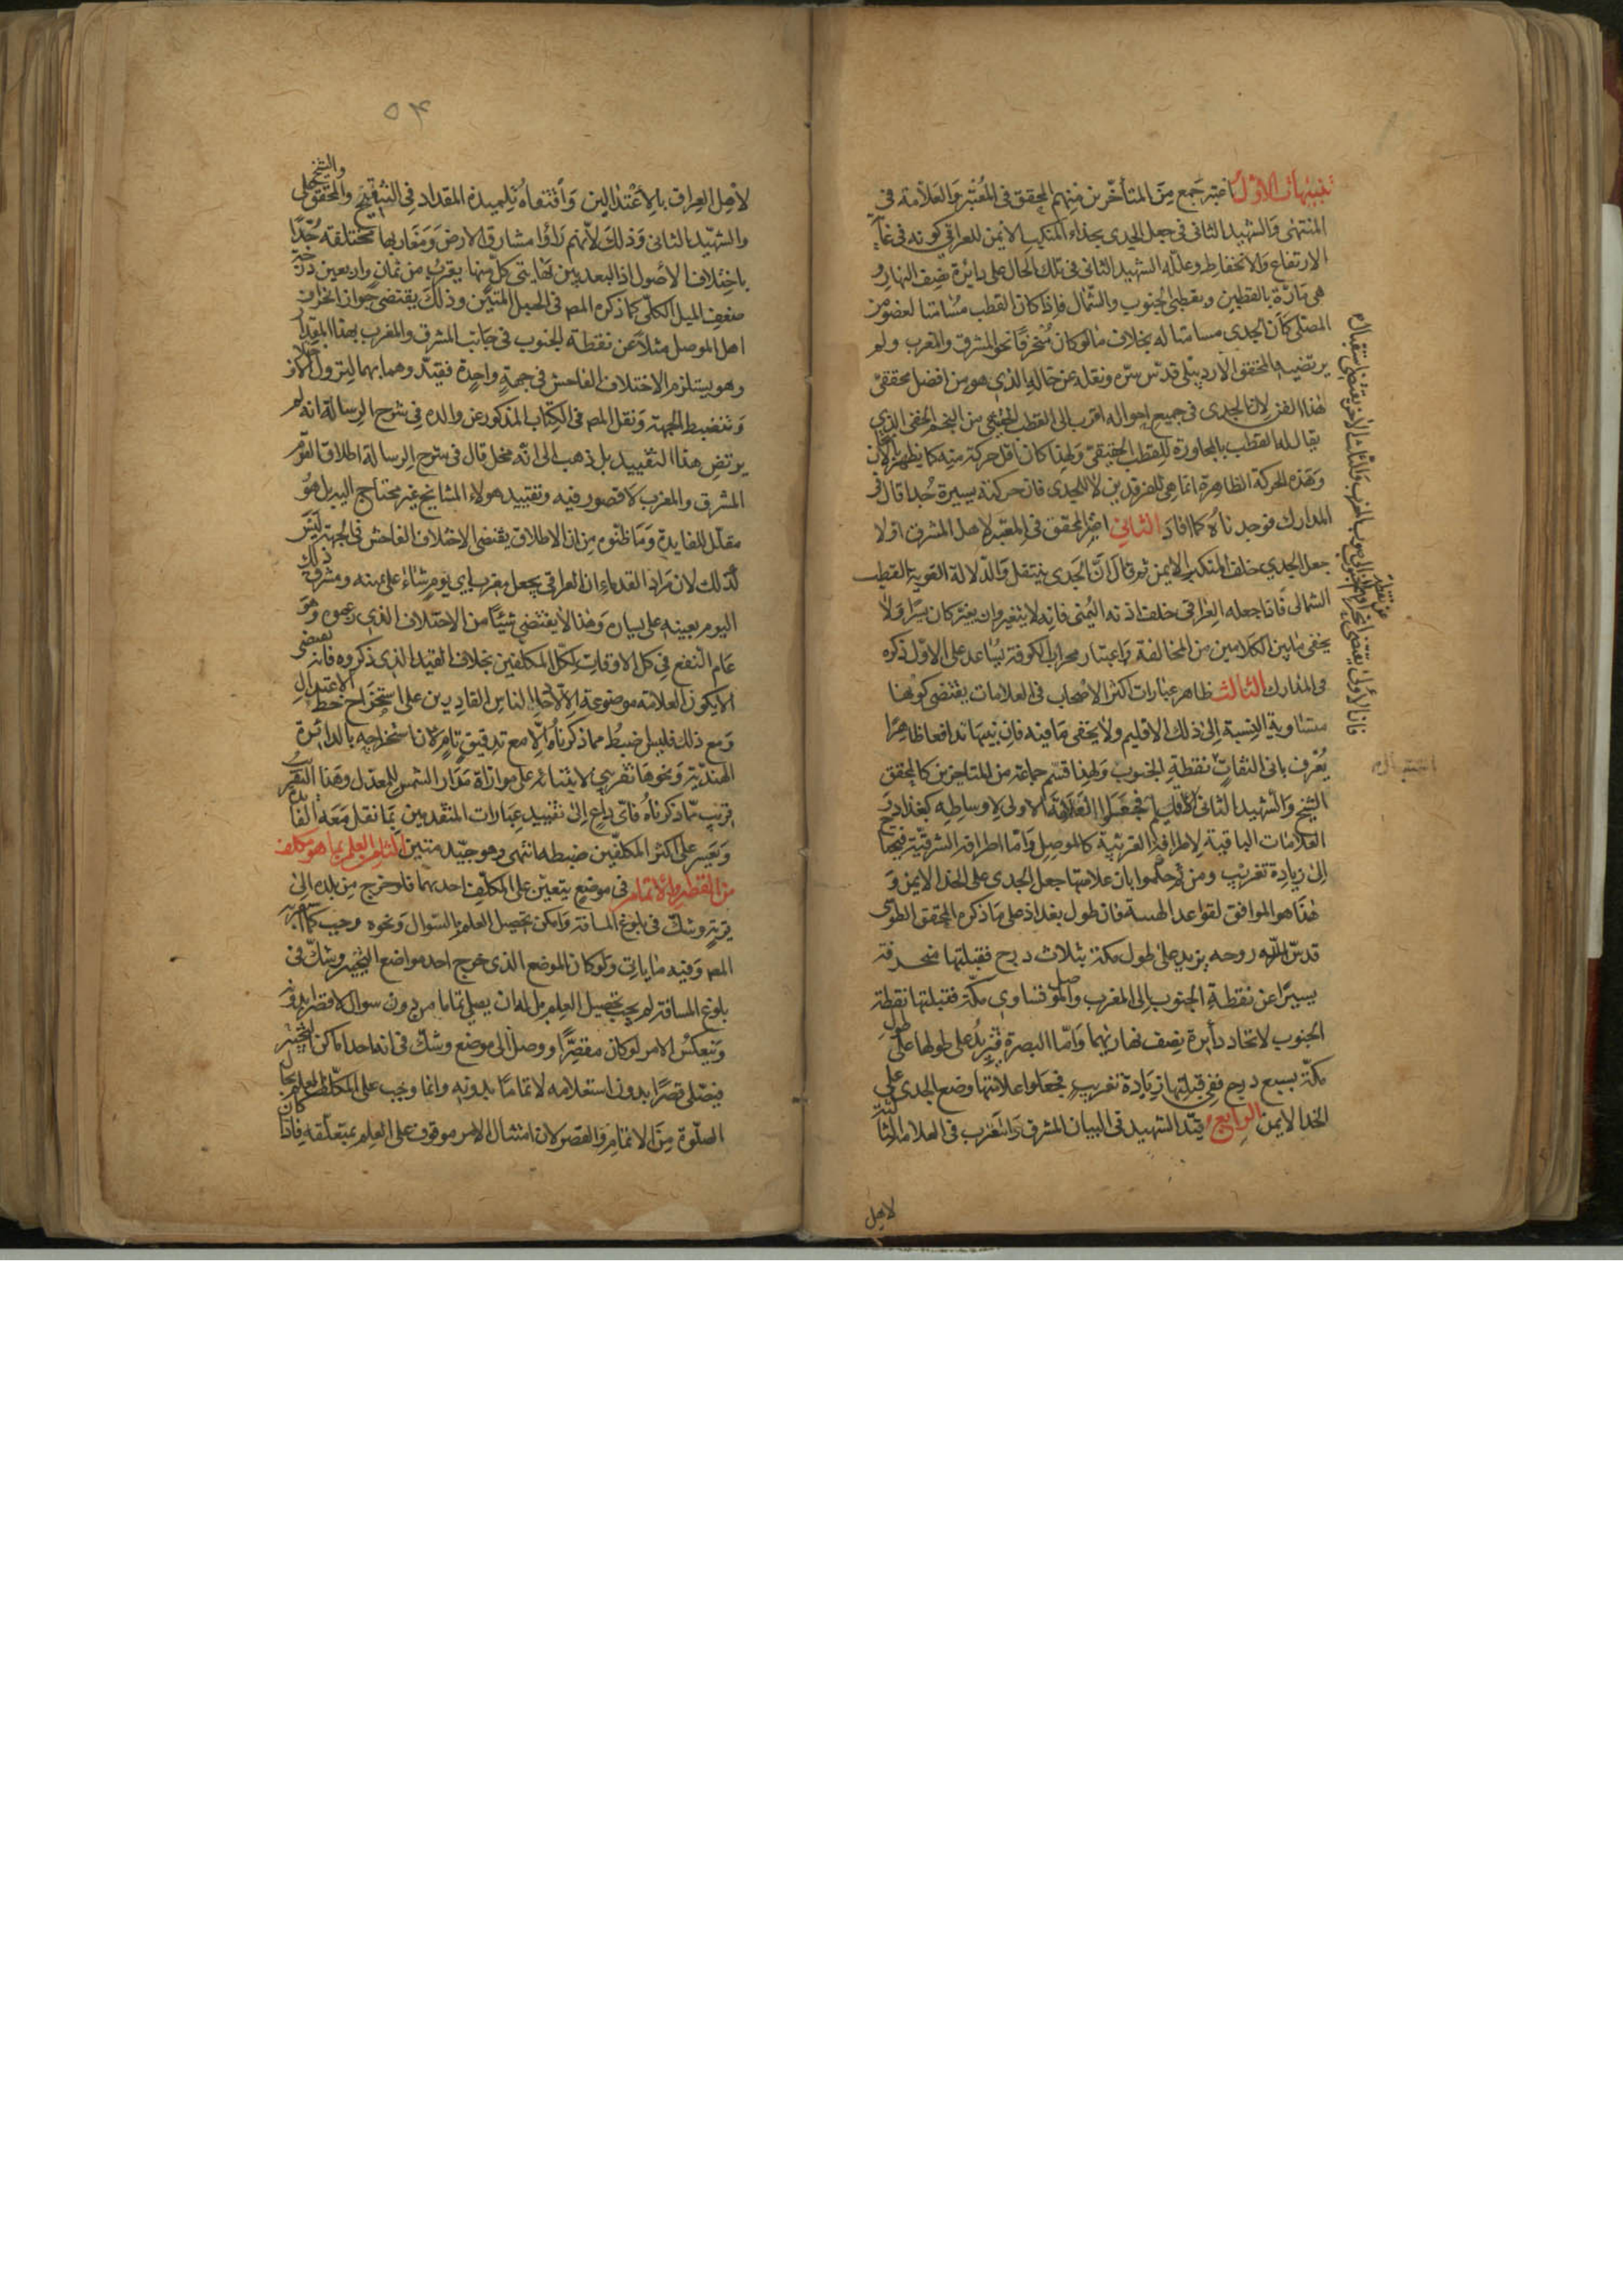 تنبيهات الاول اعتبر جمع من المتأخرين منهم المحقق في المعتبر والعلامة في
المنتهى والشهيد الثاني في جعل الجدي بحذاء المنكب الايمن للعراقي كونه في غاية
الارتفاع والانخفاض وعلله الشهيد الثاني في تلك الحال على دائرة نصف النهار و
هي مارة بالقطبين وبنقطتي الجنوب والشمال فاذا كان القطب مسامتا لعضو من
المصلى كان الجدي مسامتا له بخلاف ما لو كان منحرفا نحو المشرق والمغرب ولم
يرتضيه المحقق الاردبيلى قدس سره ونقله عن خاله الذي هو من افضل محققى
هذا الفن لان الجدى فى جميع احواله اقرب الى القطب الحقيقي من النجم الخفى الذي
يقال له القطب بالمجاورة للقطب الحقيقى ولهذا كان اقل حركة منه كما يظهر الآن
وهذه الحركة الظاهرة انما هي للفرقدين لا للجدي فان حركته يسيرة جدا قال فى
المدارك فوجدناه كما افاد الثاني اعتبر المحقق فى المعتبر لاهل المشرق اولا
جعل الجدي خلف المنكب الايمن ثم قال ان الجدى ينتقل والدلالة القوية القطب
الشمالى فاذا جعله العراقى خلف اذنه اليمنى فانه لا يتغير وان تغير كان يسيرا ولا
يخفى ما بين الكلامين من المخالفة واعتبار محراب الكوفة يساعد على الاول ذكره
فى المدارك الثالث ظاهر عبارات اكثر الاصحاب فى العلامات يقتضى كونها
متساوية النسبة الى ذلك الاقليم ولا يخفى ما فيه فان بينها تدافعا ظاهرا
يعرف بادنى التفات نقطة الجنوب ولهذا قسم جماعة من المتاخرين كالمحقق
الشيخ والشهيد الثانى الاقليم فجعلوا العلامة الاولى لاوساطه كبغداد و
العلامات الباقية لاطرافه الغربية كالموصل واما اطرافه الشرقية فيحتاج
الى زيادة تغريب ومن ثم حكموا بان علامتها جعل الجدى على الخد الايمن و
هذا هو الموافق لقواعد الهيئة فان طول بغداد على ما ذكره المحقق الطوسى
قدس الله روحه يزيد على طول مكة بثلاث درج فقبلتها منحرفة
يسيرا عن نقطة الجنوب الى المغرب والموصل تساوي مكة فقبلتها نقطة
الجنوب لاتحاد دائرة نصف نهاريهما واما البصرة فيزيد طولها على طول
مكة بسبع درج ففى قبلتها زيادة تغريب فجعلوا علامتها وضع الجدى على
الخد الايمن الرابع قيد الشهيد فى البيان المشرق والمغرب فى العلامة الثانية
لاهل
فان الاول يقتضي
استقباله
٥٤
لاهل العراق بالاعتدالين واقتفاه تلميذه المقداد فى التنقيح والمحقق الشيخ على
والشهيد الثانى وذلك لانهم رأوا مشارق الارض ومغاربها مختلفة جدا
باختلاف الفصول اذ البعد بين نهايتى كل منها يقرب من ثمان واربعين درجة
ضعف الميل الكلى كما ذكره المص فى الحبل المتين وذلك يقتضى جواز انحراف
اهل الموصل مثلا عن نقطة الجنوب فى جانب المشرق والمغرب بهذا المقدار
وهو يستلزم الاختلاف الفاحش فى جهة واحدة فقيدوهما بهما ليزول
وتنضبط الجهة ونقل المص فى الكتاب المذكور عن والده فى شرح الرسالة انه لم
يرتض هذا التقييد بل ذهب الى انه مخل قال فى شرح الرسالة اطلاق القوم
المشرق والمغرب لا قصور فيه وتقييد هولاء المشايخ غير محتاج اليه بل هو
مقلل للفايدة وما ظنوه من ان الاطلاق يقتضى الاختلاف الفاحش فى الجهة ليس
كذلك لان مراد القدماء ان العراقى يجعل مغرب اي يوم شاء على يمينه ومشرق ذلك
اليوم بعينه على يساره وهذا لا يقتضى شيئا من الاختلاف الذي زعموه وهو
عام النفع فى كل الاوقات لكل المكلفين بخلاف القيد الذي ذكروه فانه يقتضى
الا يكون العلامة موضوعة الا لآحاد الناس القادرين على استخراج خط الاعتدال
ومع ذلك فليس ضبط مما ذكرناه الا مع تدقيق تام لان استخراجه بالدائرة
الهندية ونحوها تقريبى لابتنائه على موازاة مدار الشمس للمعدل وهذا التقريب
قريب مما ذكرناه فاي داع الى تقييد عبارات المتقدمين بما تقل معه الفايدة
ويعسر على اكثر المكلفين ضبطه انتهى وهو جيد متين الثامن العلم بما هو مكلف
من القصر والاتمام فى موضع يتعين على المكلف احدهما فلو خرج من بلده الى
قرية وشك فى بلوغ المسافة وامكن تحصيل العلم بالسوال ونحوه وجب كما
المص وفيه ما ياتى ولو كان الموضع الذى خرج احد مواضع التخيير وشك فى
بلوغ المسافة لم يجب تحصيل العلم بل له ان يصلى تماما من دون سوال لا قصرا بدونه
وينعكس الامر لو كان مقصرا ووصل الى موضع وشك فى انه احد اماكن التخيير
فيصلى قصرا بدون استعلامه لا تماما بدونه وانما وجب على المكلف العلم بحال
الصلوة من الاتمام والقصر لان امتثال الامر موقوف على العلم بمتعلقه فاذا كان